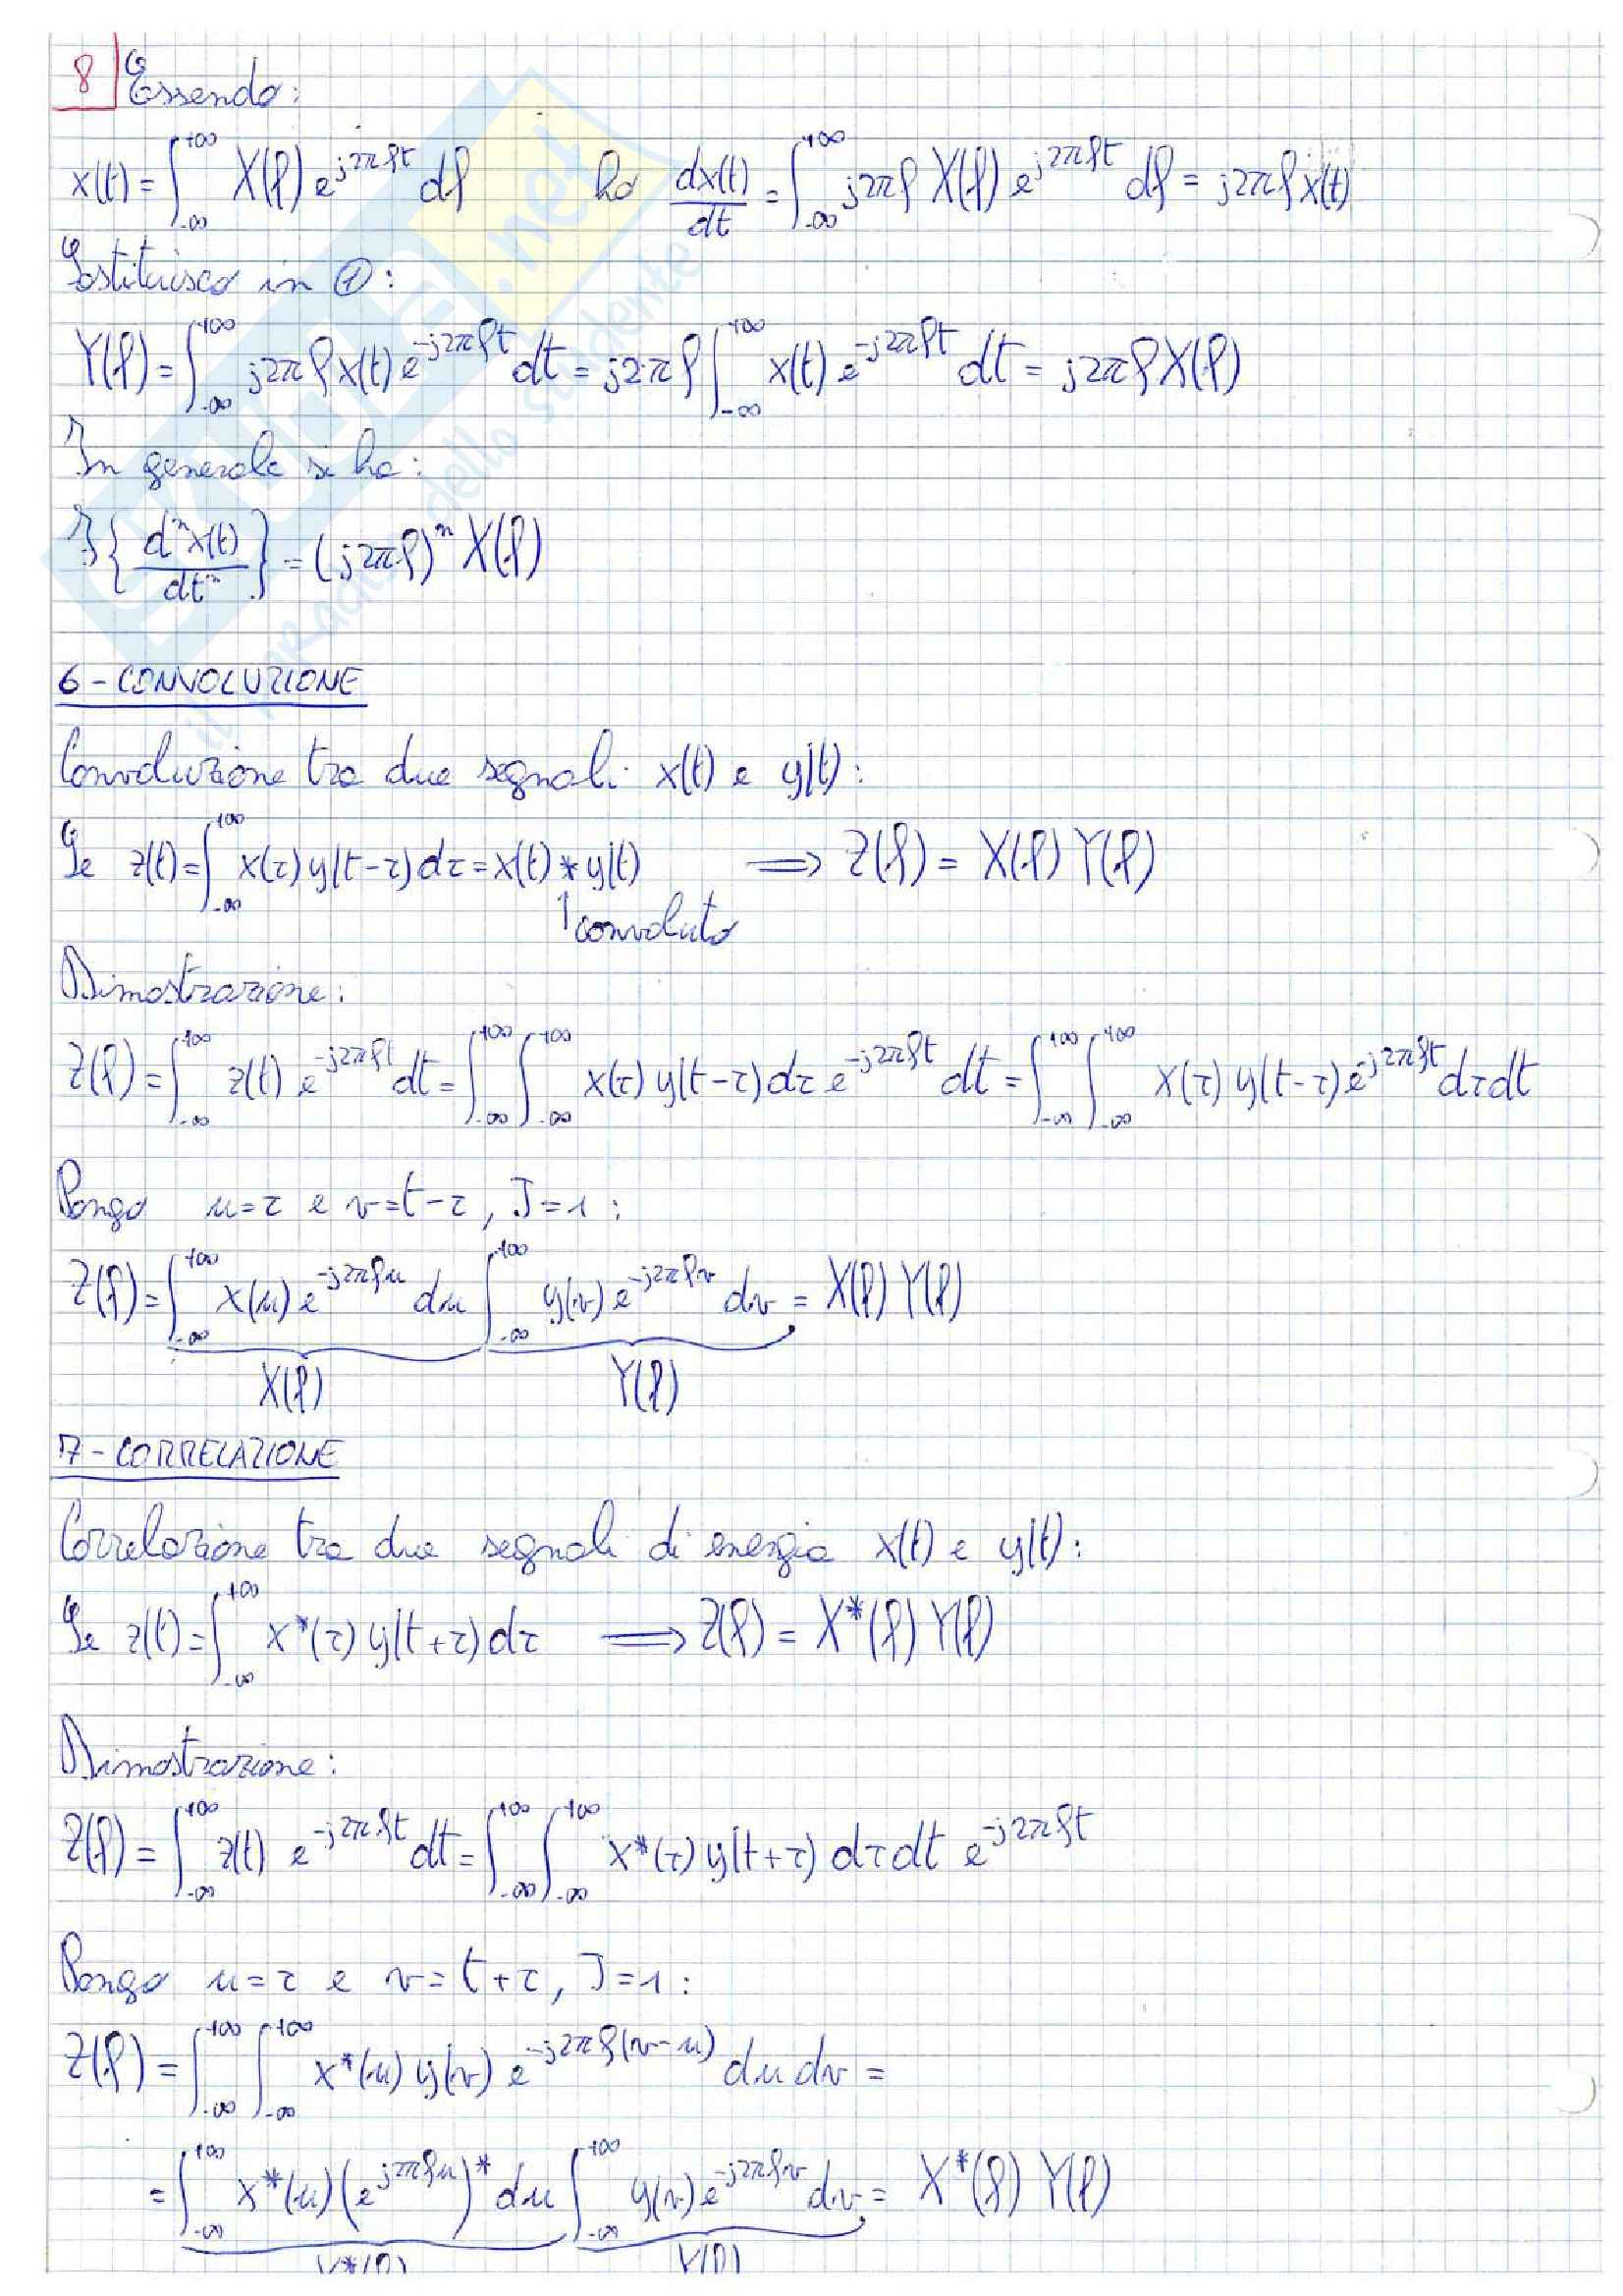 8 Essendo:
x(t) = ∫_{-∞}^{+∞} X(f) e^{j2πft} df ho dx(t)/dt = ∫_{-∞}^{+∞} j2πf X(f) e^{j2πft} df = j2πf x(t)
Sostituisco in ①:
Y(f) = ∫_{-∞}^{+∞} j2πf x(t) e^{-j2πft} dt = j2πf ∫_{-∞}^{+∞} x(t) e^{-j2πft} dt = j2πf X(f)
In generale si ha:
ℱ{ d^n x(t) / dt^n } = (j2πf)^n X(f)
6 - CONVOLUZIONE
Convoluzione tra due segnali x(t) e y(t):
Se z(t) = ∫_{-∞}^{+∞} x(τ) y(t-τ) dτ = x(t) * y(t) ⟹ Z(f) = X(f) Y(f)
↑ convoluto
Dimostrazione:
Z(f) = ∫_{-∞}^{+∞} z(t) e^{-j2πft} dt = ∫_{-∞}^{+∞} ∫_{-∞}^{+∞} x(τ) y(t-τ) dτ e^{-j2πft} dt = ∫_{-∞}^{+∞} ∫_{-∞}^{+∞} x(τ) y(t-τ) e^{-j2πft} dτ dt
Pongo u = τ e v = t-τ, J = 1:
Z(f) = ∫_{-∞}^{+∞} x(u) e^{-j2πfu} du ∫_{-∞}^{+∞} y(v) e^{-j2πfv} dv = X(f) Y(f)
X(f) Y(f)
7 - CORRELAZIONE
Correlazione tra due segnali di energia x(t) e y(t):
Se z(t) = ∫_{-∞}^{+∞} x*(τ) y(t+τ) dτ ⟹ Z(f) = X*(f) Y(f)
Dimostrazione:
Z(f) = ∫_{-∞}^{+∞} z(t) e^{-j2πft} dt = ∫_{-∞}^{+∞} ∫_{-∞}^{+∞} x*(τ) y(t+τ) dτ dt e^{-j2πft}
Pongo u = τ e v = t+τ, J = 1:
Z(f) = ∫_{-∞}^{+∞} ∫_{-∞}^{+∞} x*(u) y(v) e^{-j2πf(v-u)} du dv =
= ∫_{-∞}^{+∞} x*(u) (e^{j2πfu})* du ∫_{-∞}^{+∞} y(v) e^{-j2πfv} dv = X*(f) Y(f)
X*(f) Y(f)
.net
dello studente